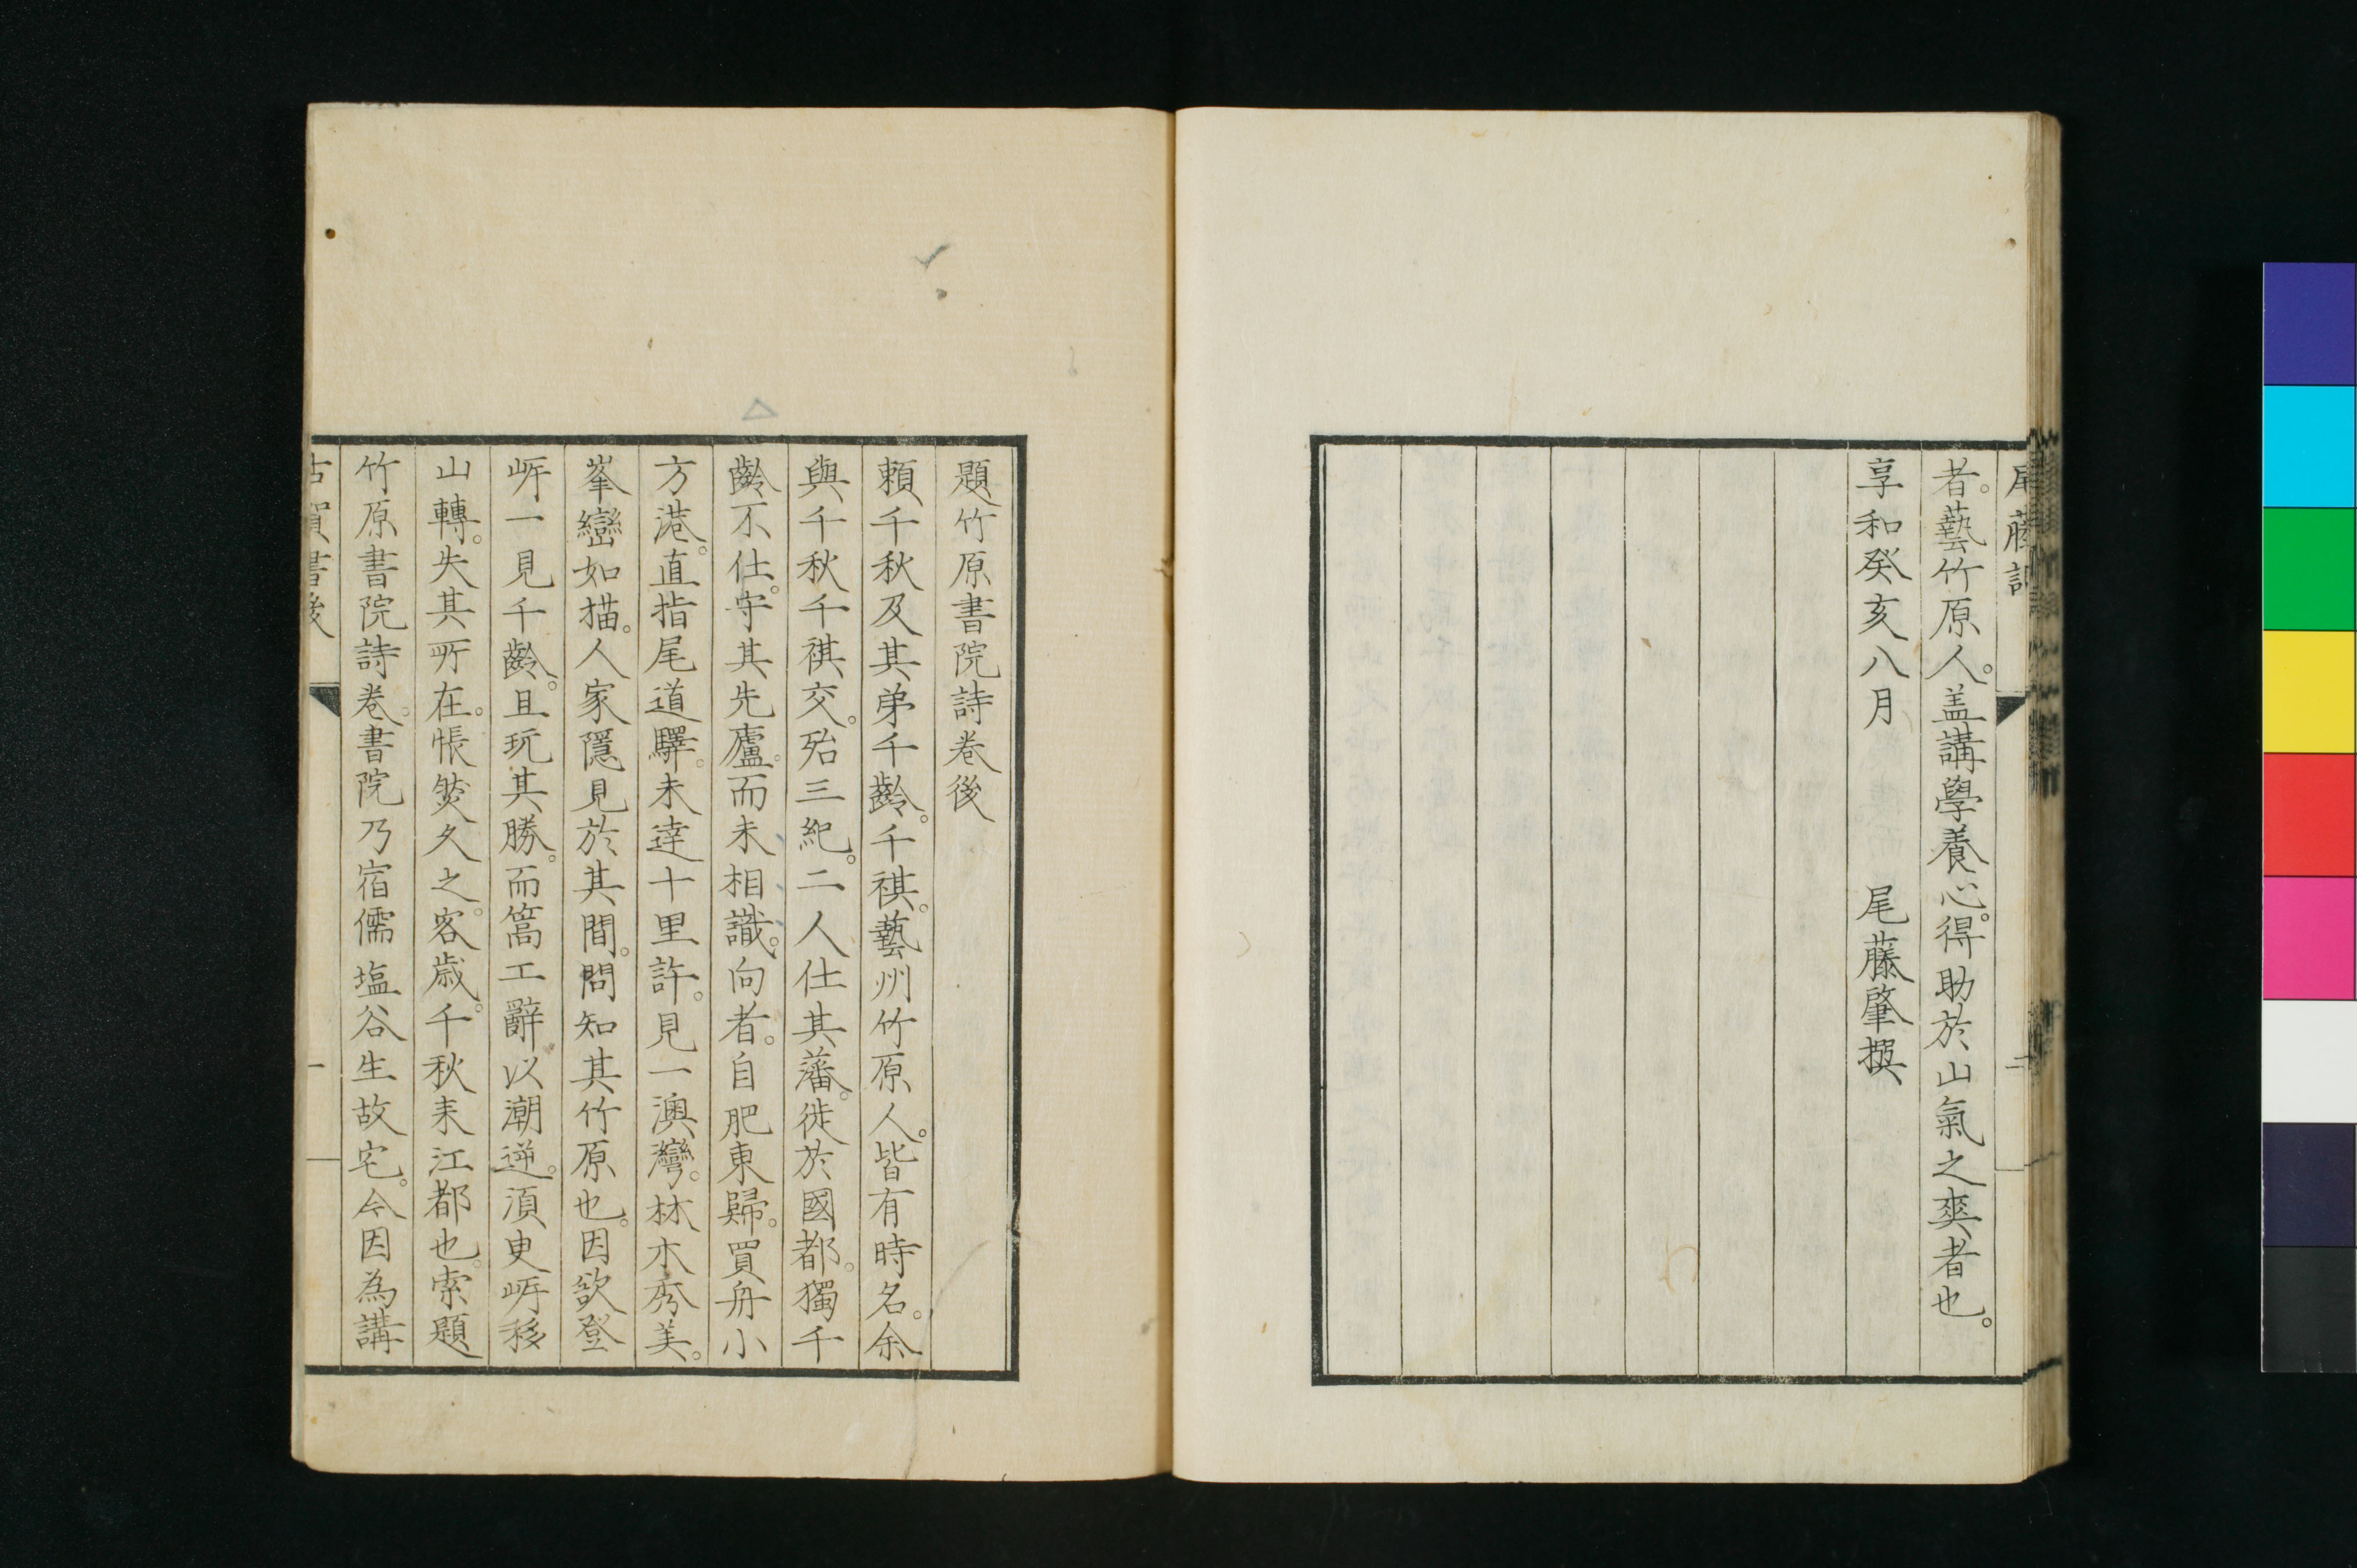 尾藤記
二
者。藝竹原人。盖講學養心。得助於山氣之爽者也。
享和癸亥八月　尾藤肇撰
題竹原書院詩卷後
賴千秋及其弟千齡。千祺。藝州竹原人。皆有時名。余
與千秋千祺交。殆三紀。二人仕其藩。徙於國都。獨千
齡不仕。守其先廬。而未相識。向者。自肥東歸。買舟小
方港。直指尾道驛。未達十里許。見一澳灣。林木秀美。
峯巒如描。人家隱見於其間。問知其竹原也。因欲登
岸一見千齡。且玩其勝。而篙工辭以潮逆。須臾岸移
山轉。失其所在。悵然久之。客歲。千秋来江都也。索題
竹原書院詩卷。書院乃宿儒塩谷生故宅。今因為講
古賀書後
一